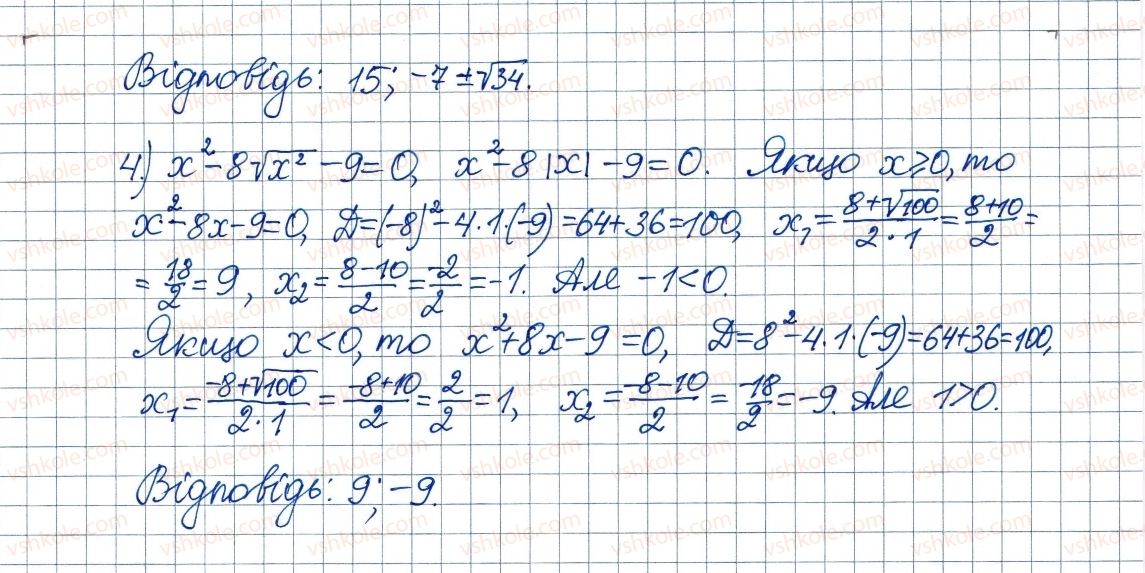 Відповідь: 15; -7 ± √34.
4.) x² - 8√x² - 9 = 0, x² - 8|x| - 9 = 0. Якщо x ≥ 0, то
x² - 8x - 9 = 0, Д = (-8)² - 4·1·(-9) = 64 + 36 = 100, x₁ = (8+√100)/(2·1) = (8+10)/2 =
= 18/2 = 9, x₂ = (8-10)/2 = -2/2 = -1. Але -1 < 0.
Якщо x < 0, то x² + 8x - 9 = 0, Д = 8² - 4·1·(-9) = 64 + 36 = 100,
x₁ = (-8+√100)/(2·1) = (-8+10)/2 = 2/2 = 1, x₂ = (-8-10)/2 = -18/2 = -9. Але 1 > 0.
Відповідь: 9; -9.